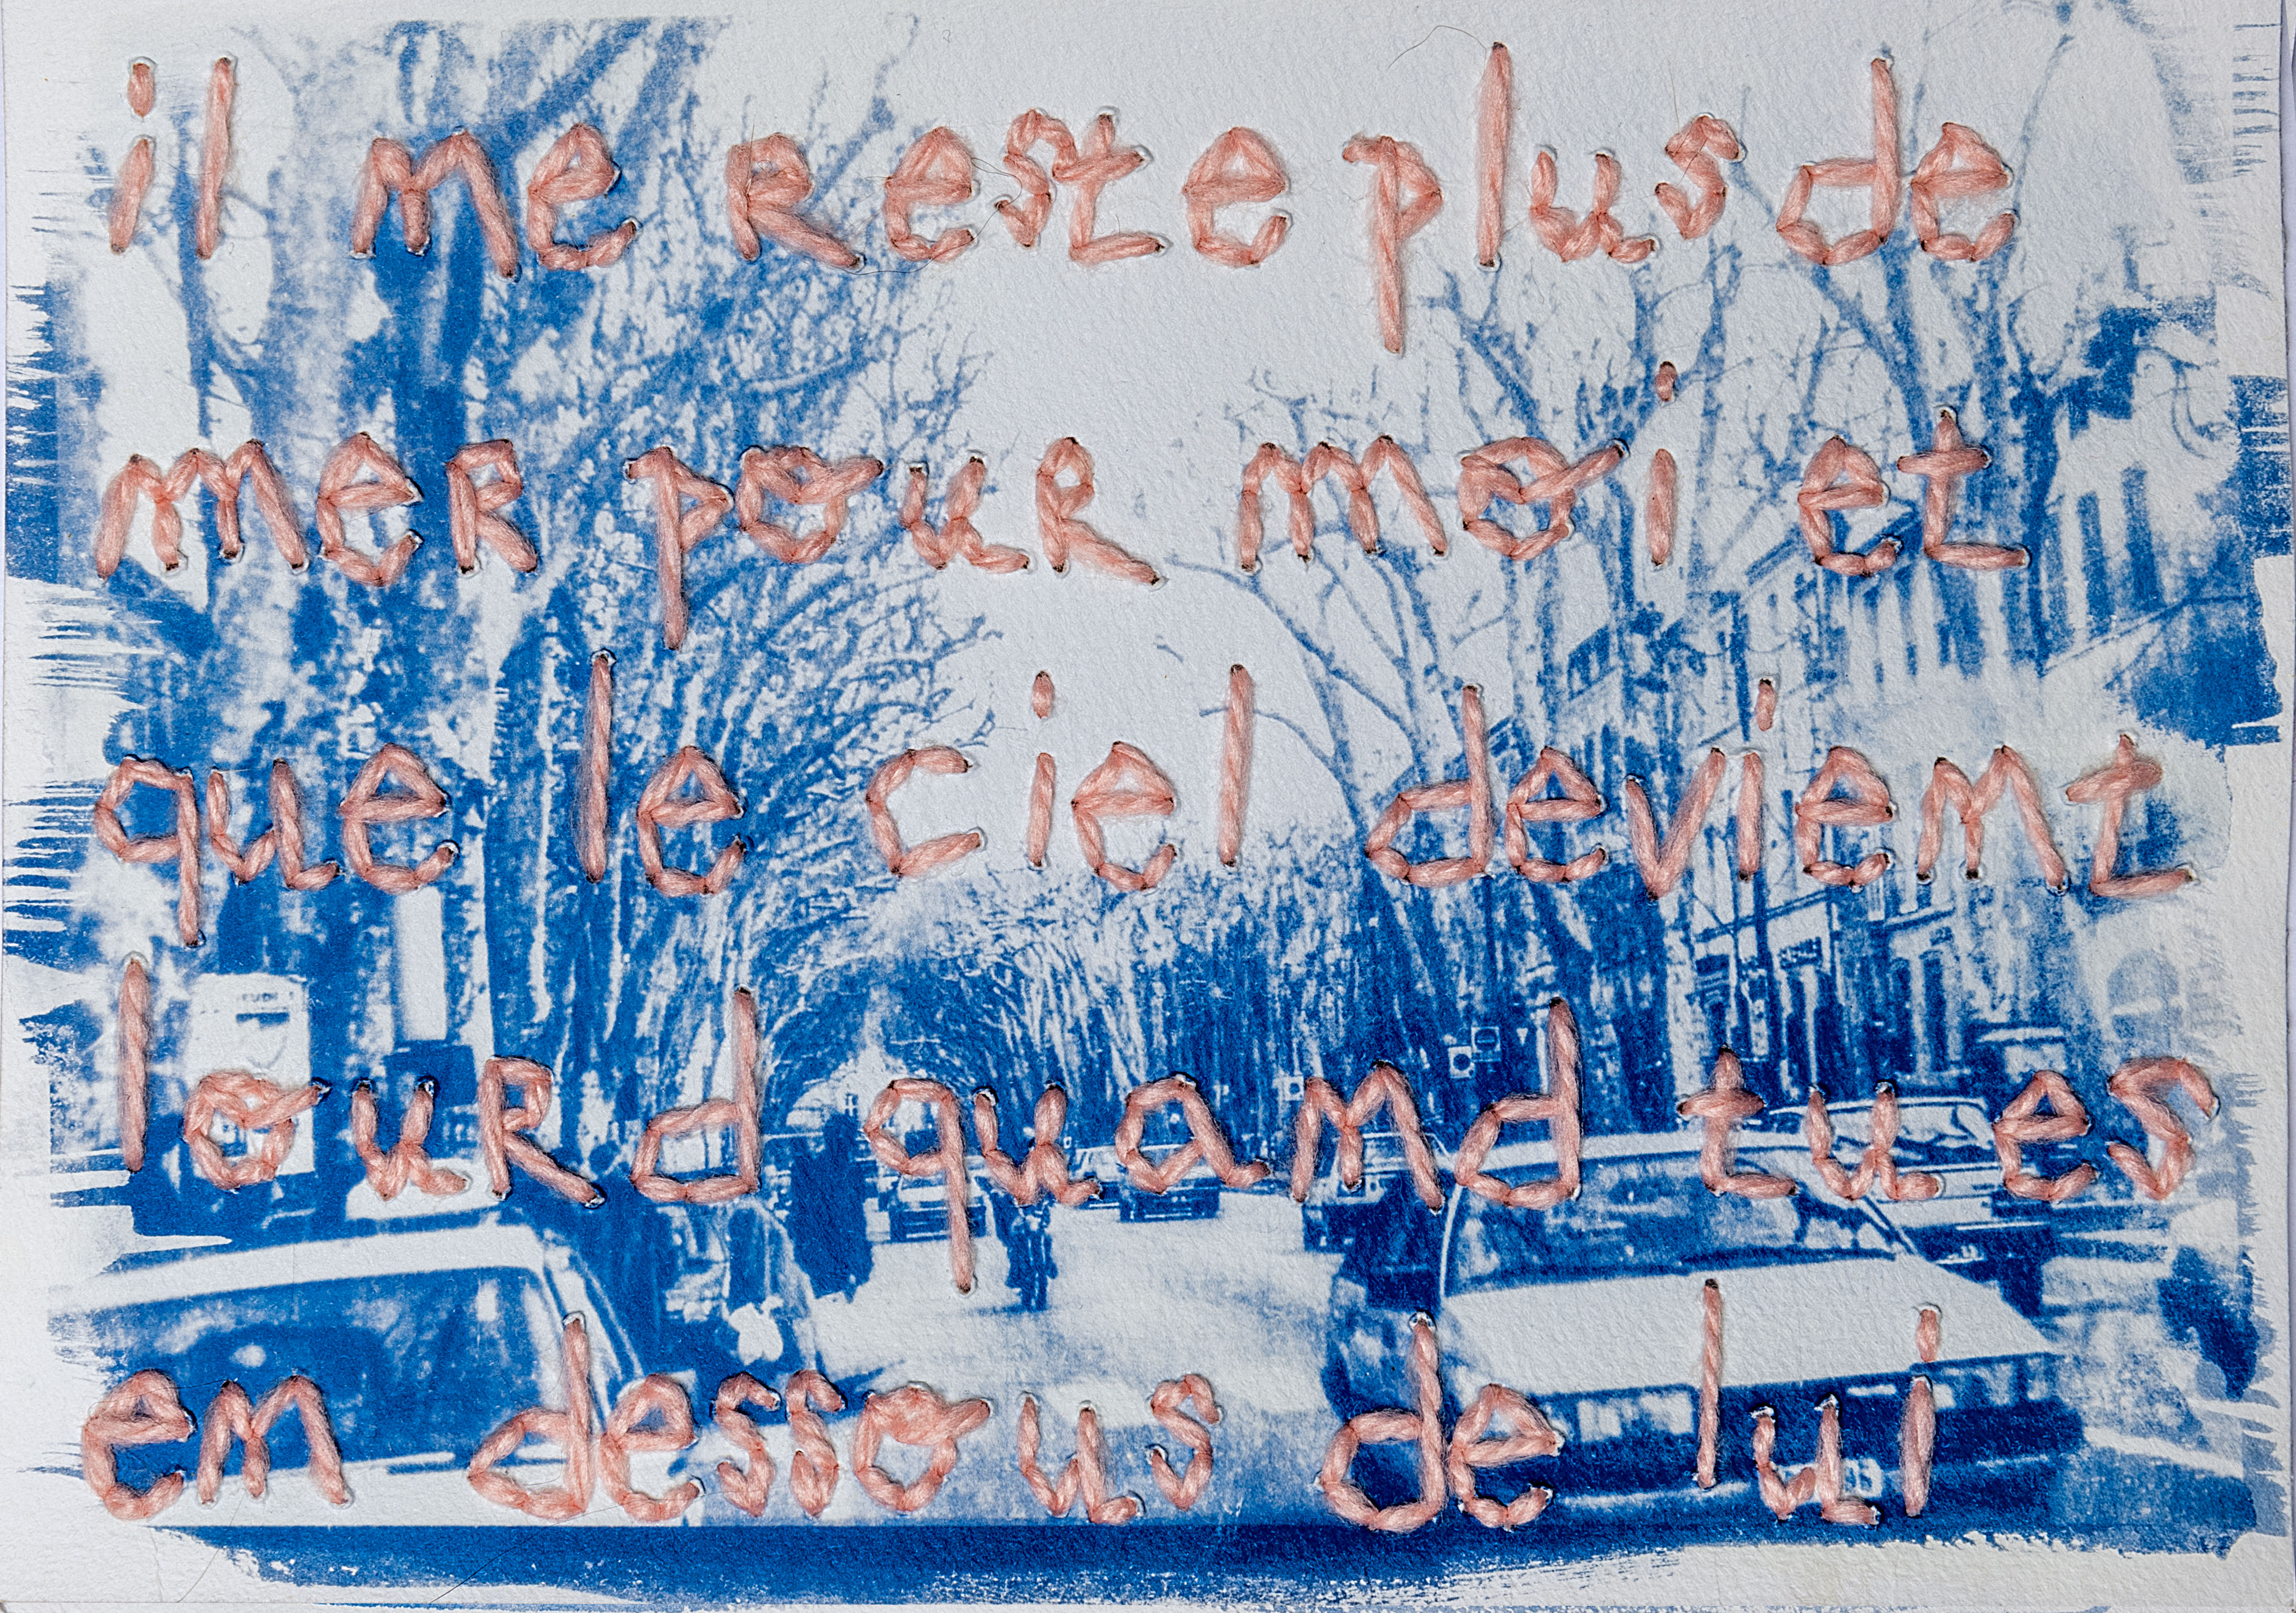 il me reste plus de
mer pour moi et
que le ciel devient
lourd quand tu es
en dessous de lui